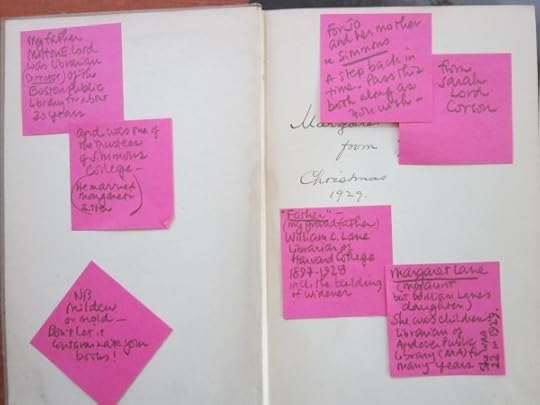 My father
Milton E Lord
was librarian
(Director) of the
Boston Public
Library for about
30 years
and was one of
the Trustees
of Simmons
College—
He married
Margaret
NB
Mildew
or mold—
Don't let it
contaminate your
books!
For Jo
and her mother
re Simmons
A step back in
time. Pass this
book along as
you wish—
from
Sarah
Lord
Corson
Margaret
from
Christmas
1929.
"Father"—
(my grandfather)
William C. Lane
Librarian of
Harvard College
1897-1928
incl. the building
of Widener
Margaret Lane
(my aunt
but William Lane's
daughter)
She was children's
librarian of
Andover Public
Library (MA) for
many years
She was
22 in 1929.